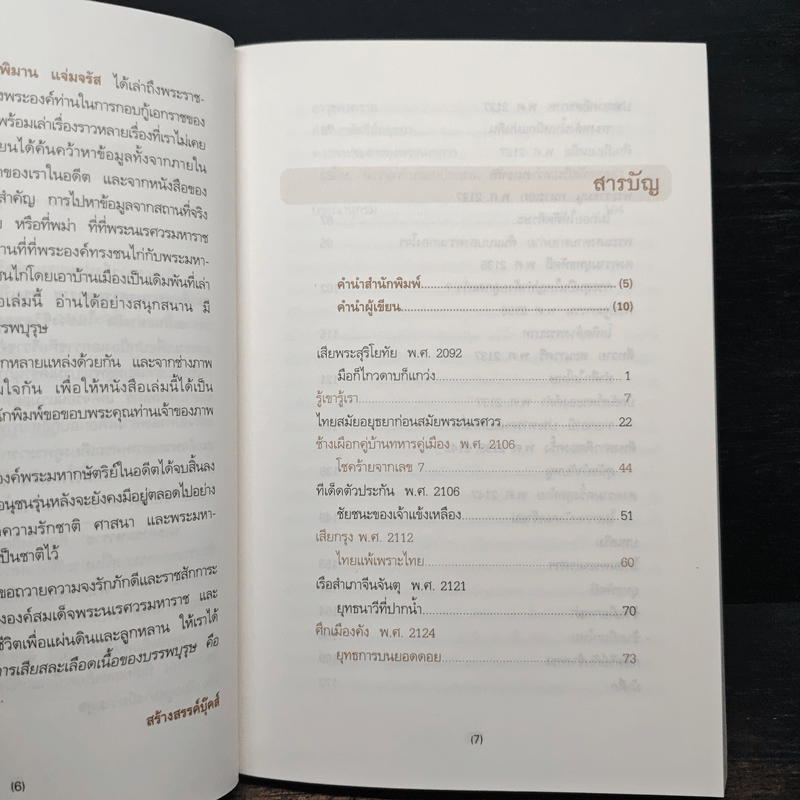 พิมาน แจ่มจรัส ได้เล่าถึงพระราช-
งพระองค์ท่านในการกอบกู้เอกราชของ
พร้อมเล่าเรื่องราวหลายเรื่องที่เราไม่เคย
ยนได้ค้นคว้าหาข้อมูลทั้งจากภายใน
าของเราในอดีต และจากหนังสือของ
สำคัญ การไปหาข้อมูลจากสถานที่จริง
ย หรือที่พม่า ที่ที่พระนเรศวรมหาราช
านที่ที่พระองค์ทรงชนไก่กับพระมหา-
ชนไก่โดยเอาบ้านเมืองเป็นเดิมพันที่เล่า
อเล่มนี้ อ่านได้อย่างสนุกสนาน มี
รรพบุรุษ
กหลายแหล่งด้วยกัน และจากช่างภาพ
มใจกัน เพื่อให้หนังสือเล่มนี้ได้เป็น
นักพิมพ์ขอขอบพระคุณท่านเจ้าของภาพ
องค์พระมหากษัตริย์ในอดีตได้จบสิ้นลง
อนุชนรุ่นหลังจะยังคงมีอยู่ตลอดไปอย่าง
ดความรักชาติ ศาสนา และพระมหา-
เป็นชาติไว้
ขอถวายความจงรักภักดีและราชสักการะ
งองค์สมเด็จพระนเรศวรมหาราช และ
ชีวิตเพื่อแผ่นดินและลูกหลาน ให้เราได้
การเสียสละเลือดเนื้อของบรรพบุรุษ คือ
สร้างสรรค์บุ๊คส์
(6)
สารบัญ
คำนำสำนักพิมพ์ (5)
คำนำผู้เขียน (10)
เสียพระสุริโยทัย พ.ศ. 2092
มือก็ไกวดาบก็แกว่ง 1
รู้เขารู้เรา 7
ไทยสมัยอยุธยาก่อนสมัยพระนเรศวร 22
ช้างเผือกคู่บ้านทหารคู่เมือง พ.ศ. 2106
โชคร้ายจากเลข 7 44
ทีเด็ดตัวประกัน พ.ศ. 2106
ชัยชนะของเจ้าแข้งเหลือง 51
เสียกรุง พ.ศ. 2112
ไทยแพ้เพราะไทย 60
เรือสำเภาจีนจันตุ พ.ศ. 2121
ยุทธนาวีที่ปากน้ำ 70
ศึกเมืองคัง พ.ศ. 2124
ยุทธการบนยอดดอย 73
(7)